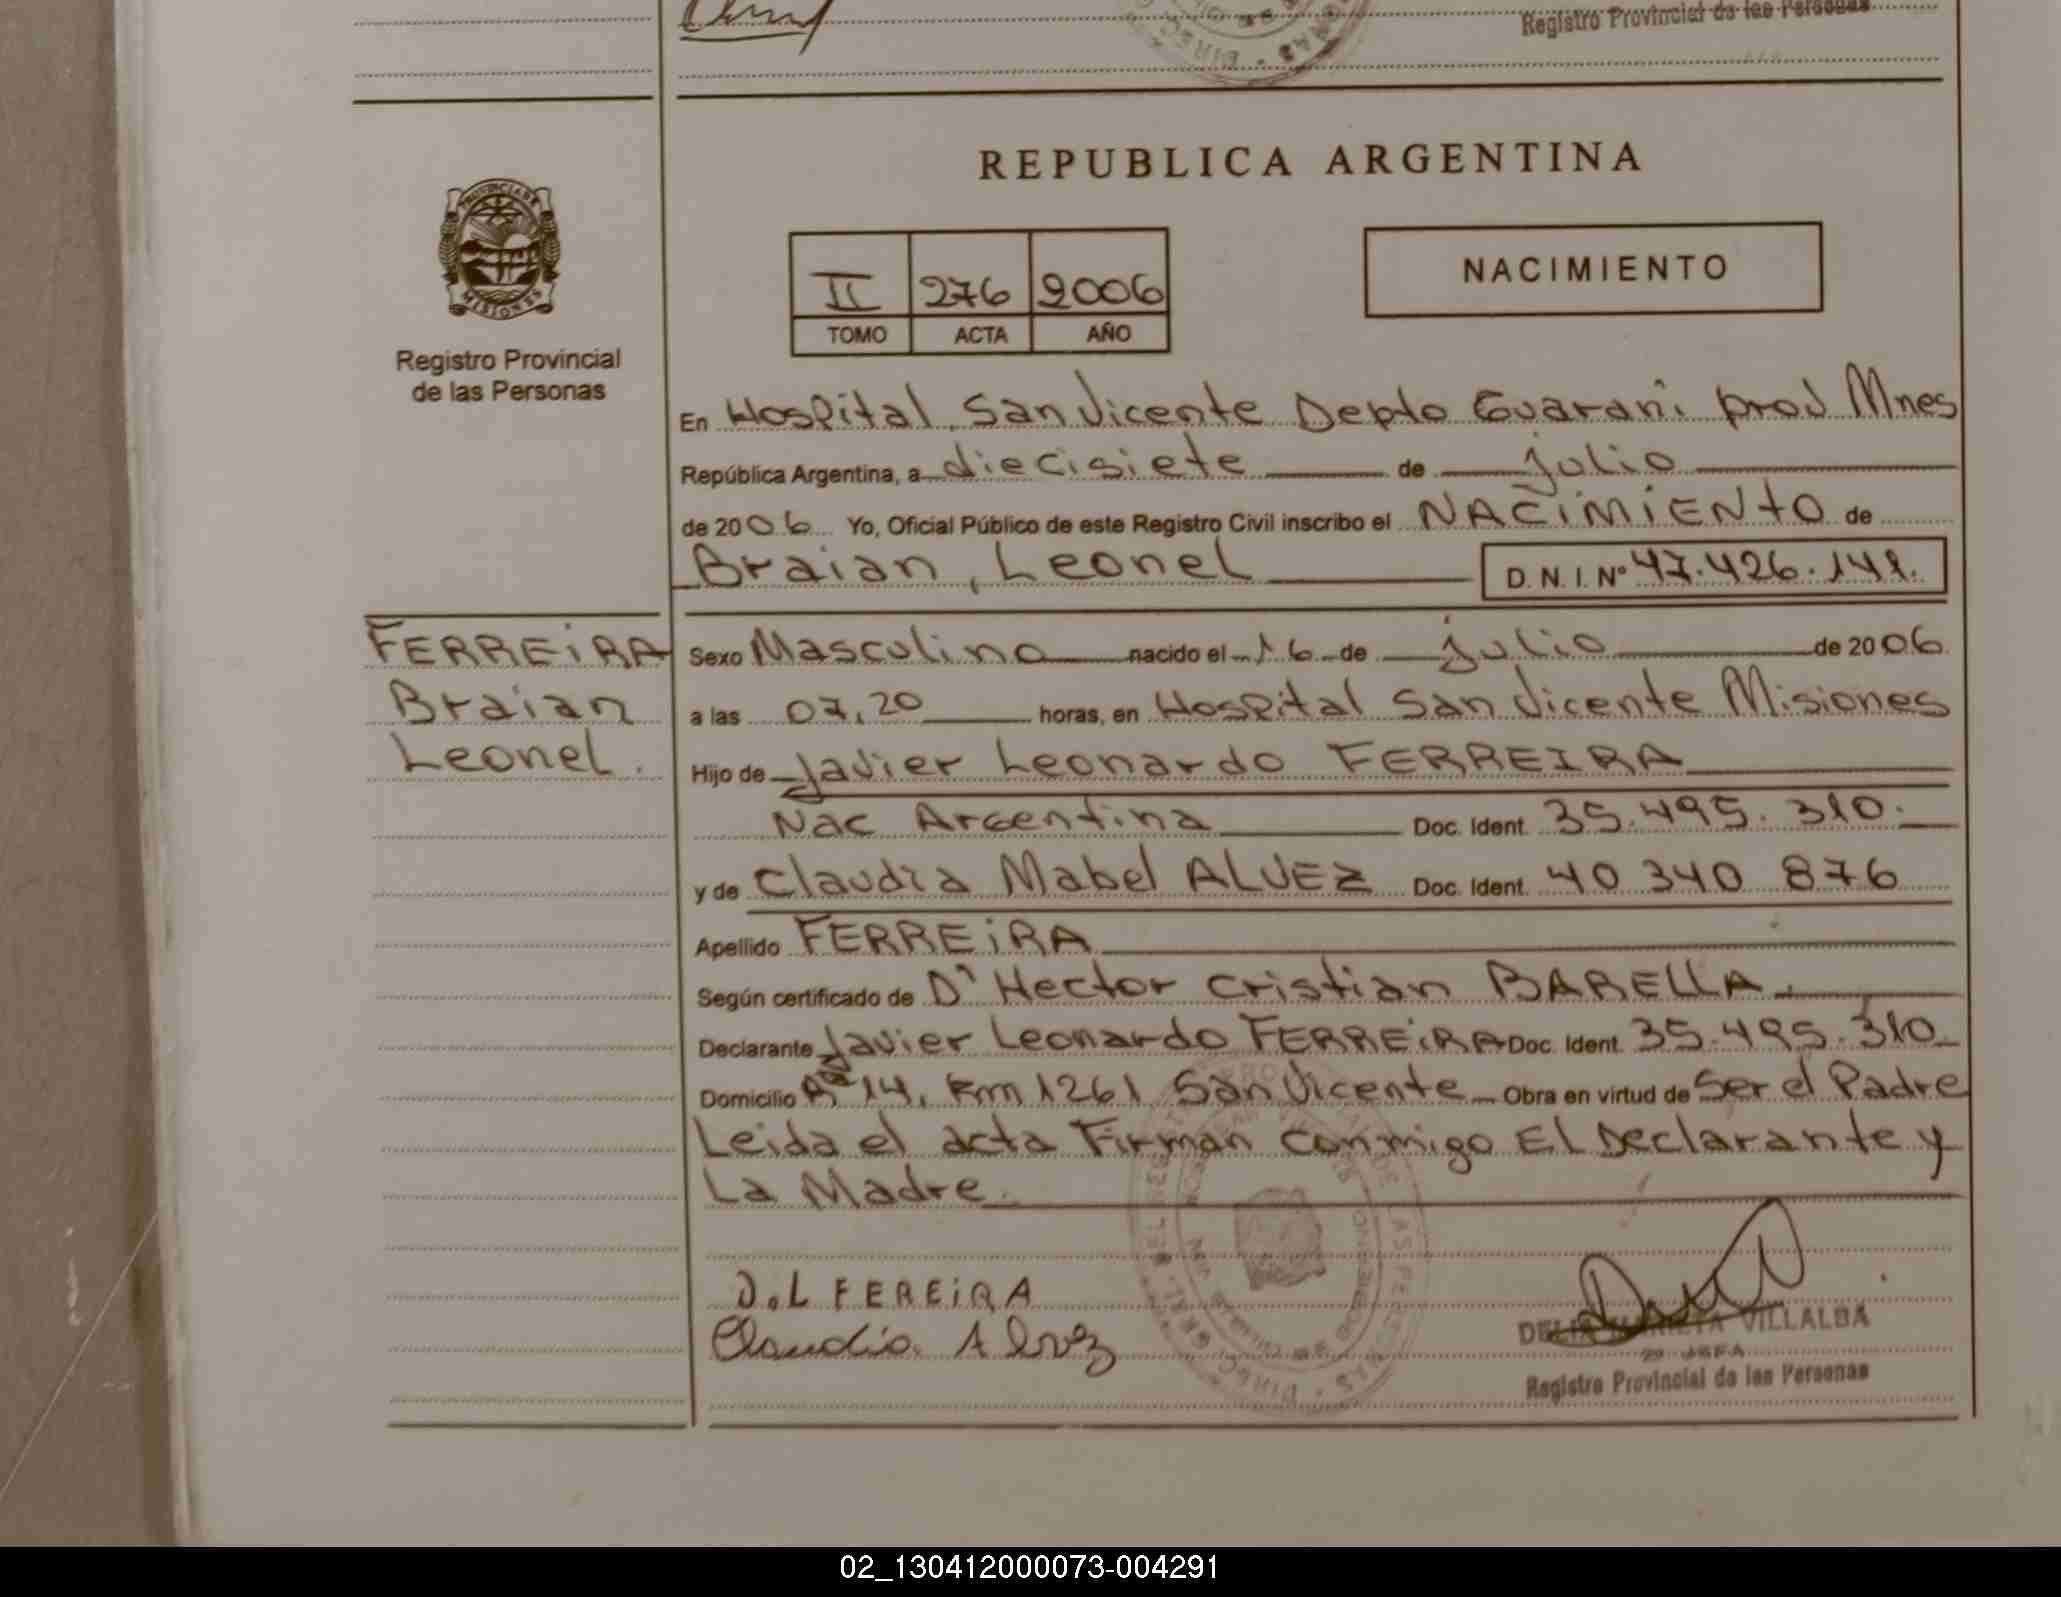 Registro Provincial de las Personas
REPUBLICA ARGENTINA
II 276 2006
TOMO ACTA AÑO
NACIMIENTO
PROVINCIA DE
MISIONES
Registro Provincial
de las Personas
En Hospital San Vicente Depto Guarani prov Mnes
República Argentina, a diecisiete de julio
de 2006 Yo, Oficial Público de este Registro Civil inscribo el NACiMiENtO de
Braian, Leonel D. N. I. Nº 47.426.141.
FERREiRA
Braian
Leonel.
Sexo Masculino nacido el 16 de julio de 2006
a las 07,20 horas, en Hospital San Vicente Misiones
Hijo de Javier Leonardo FERREIRA
Nac Argentina Doc. Ident. 35.495.310.
y de Claudia Mabel ALVEZ Doc. Ident. 40 340 876
Apellido FERREiRA
Según certificado de Dr Hector Cristian BARELLA.
Declarante Javier Leonardo FERREiRA Doc. Ident. 35.495.310
Domicilio 14, Km 1261 San Vicente Obra en virtud de Ser el Padre
Leida el acta Firman conmigo El Declarante y
La Madre.
J.L FEREiRA
Claudia Alvez
DELIA VILLALBA
JEFA
Registro Provincial de las Personas
02_130412000073-004291